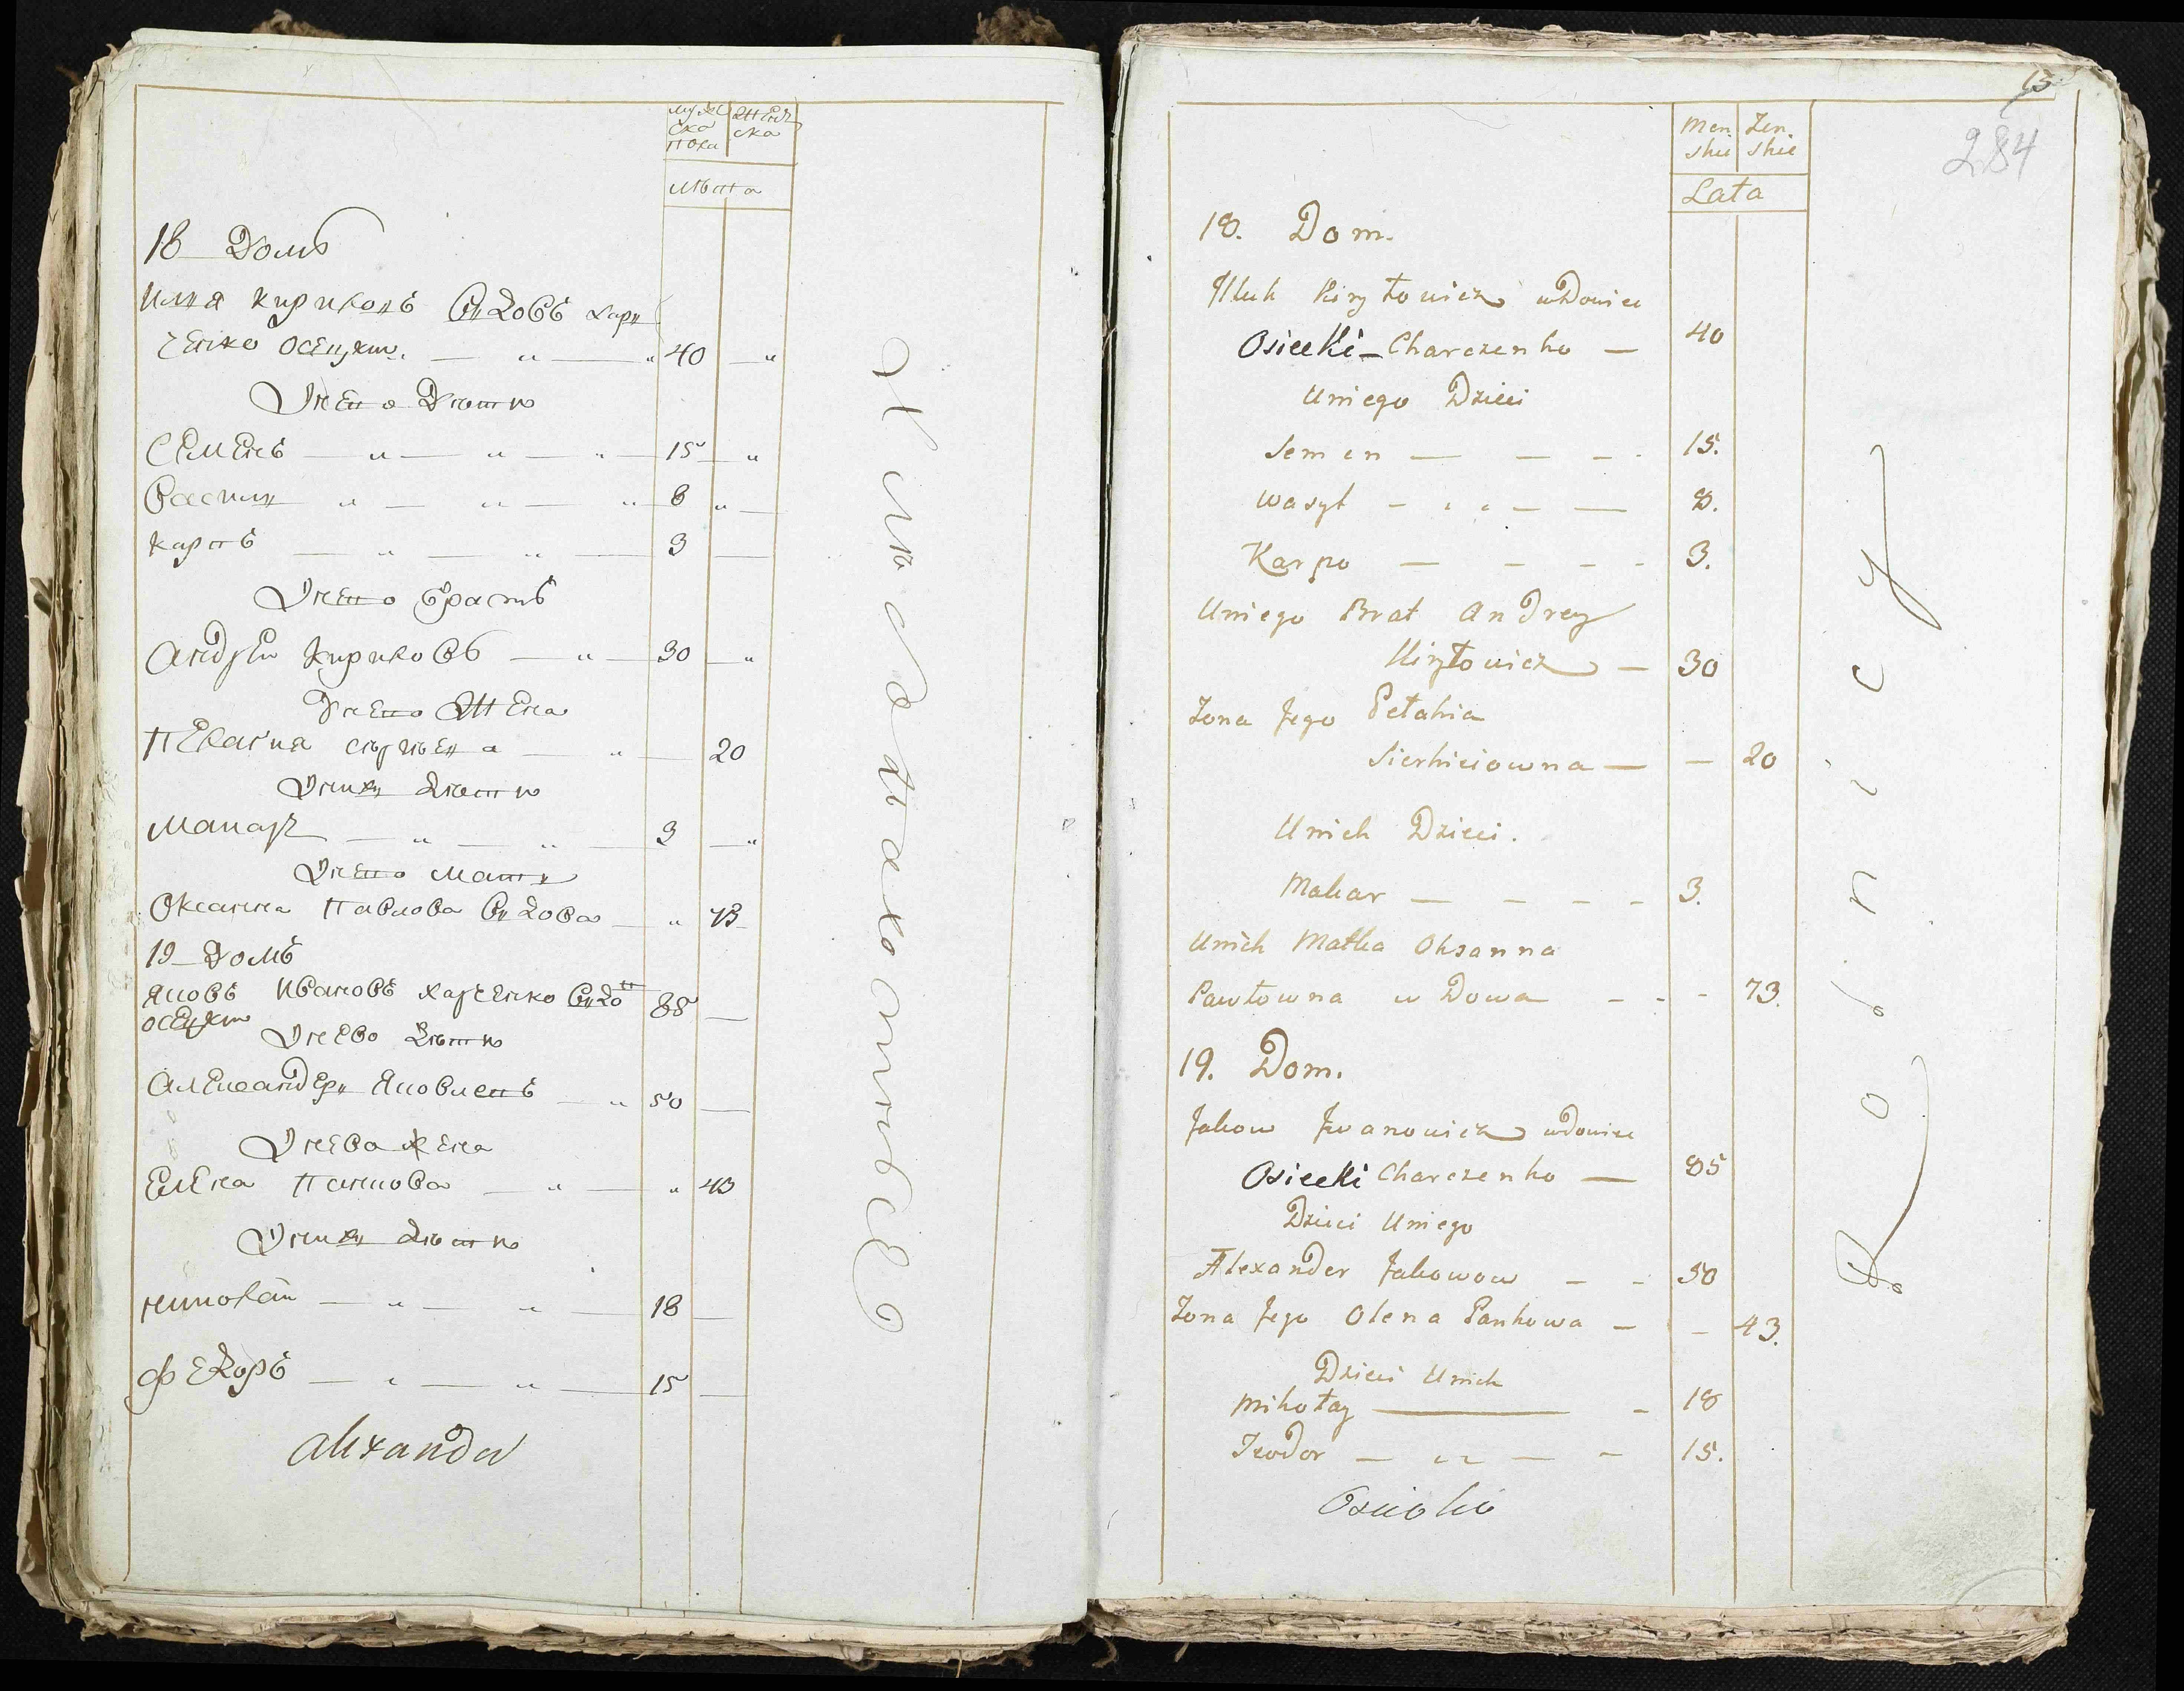 мужес
ска
пола
женс
ска
лѣта
18 Домъ
Илья Кириловъ вдовъ Хар
ченко Осецки. — „ — „ 40 — „
У него дѣти
Семенъ — „ — „ — „ — 15 — „
Васили „ — „ — „ 8 „ —
Карпъ — „ — „ — 3 —
У него братъ
Андрей Кириловъ — „ — 30 — „
У него жена
Пелагия — „ — 20
У нихъ дѣти
Макаръ — „ — „ — 3 — „
У него мати
Оксанна Павлова вдова — „ 73
19 Домъ
Яковъ Ивановъ Харченко вдо 85 —
Осецки
У нево дѣти
Александеръ — „ 50 —
У нево жена
Елена Панкова — „ — „ 43
У нихъ дѣти
николай — „ — „ — 18 —
Федоръ — „ — „ — 15 —
Alexander
13
284
Men.
skie
Zen.
skie
Lata
18. Dom.
Kiryłowicz wdowiec
Osiecki – Charczenko — 40
Uniego Dzieci
Semen — — – - 15.
Wasyl – — — 8.
Karpo — – – - 3.
Uniego Brat Andrey
Kiryłowicz — 30
Zona Jego Pełahia
Sierhiiowna — — 20
Unich Dzieci.
Makar — – – – 3.
Unich Matka Oksanna
Pawłowna wDowa – - - 73.
19. Dom.
Jakow Jwanowicz wdowiec
Osiecki Charczenko — 85
Dzieci Uniego
Alexander Jakowow – - 50
Zona Jego Olena Pankowa – – 43.
Dzieci Unich
Mikołay — – 18
— — – 15.
Osiecki
Rolnicy